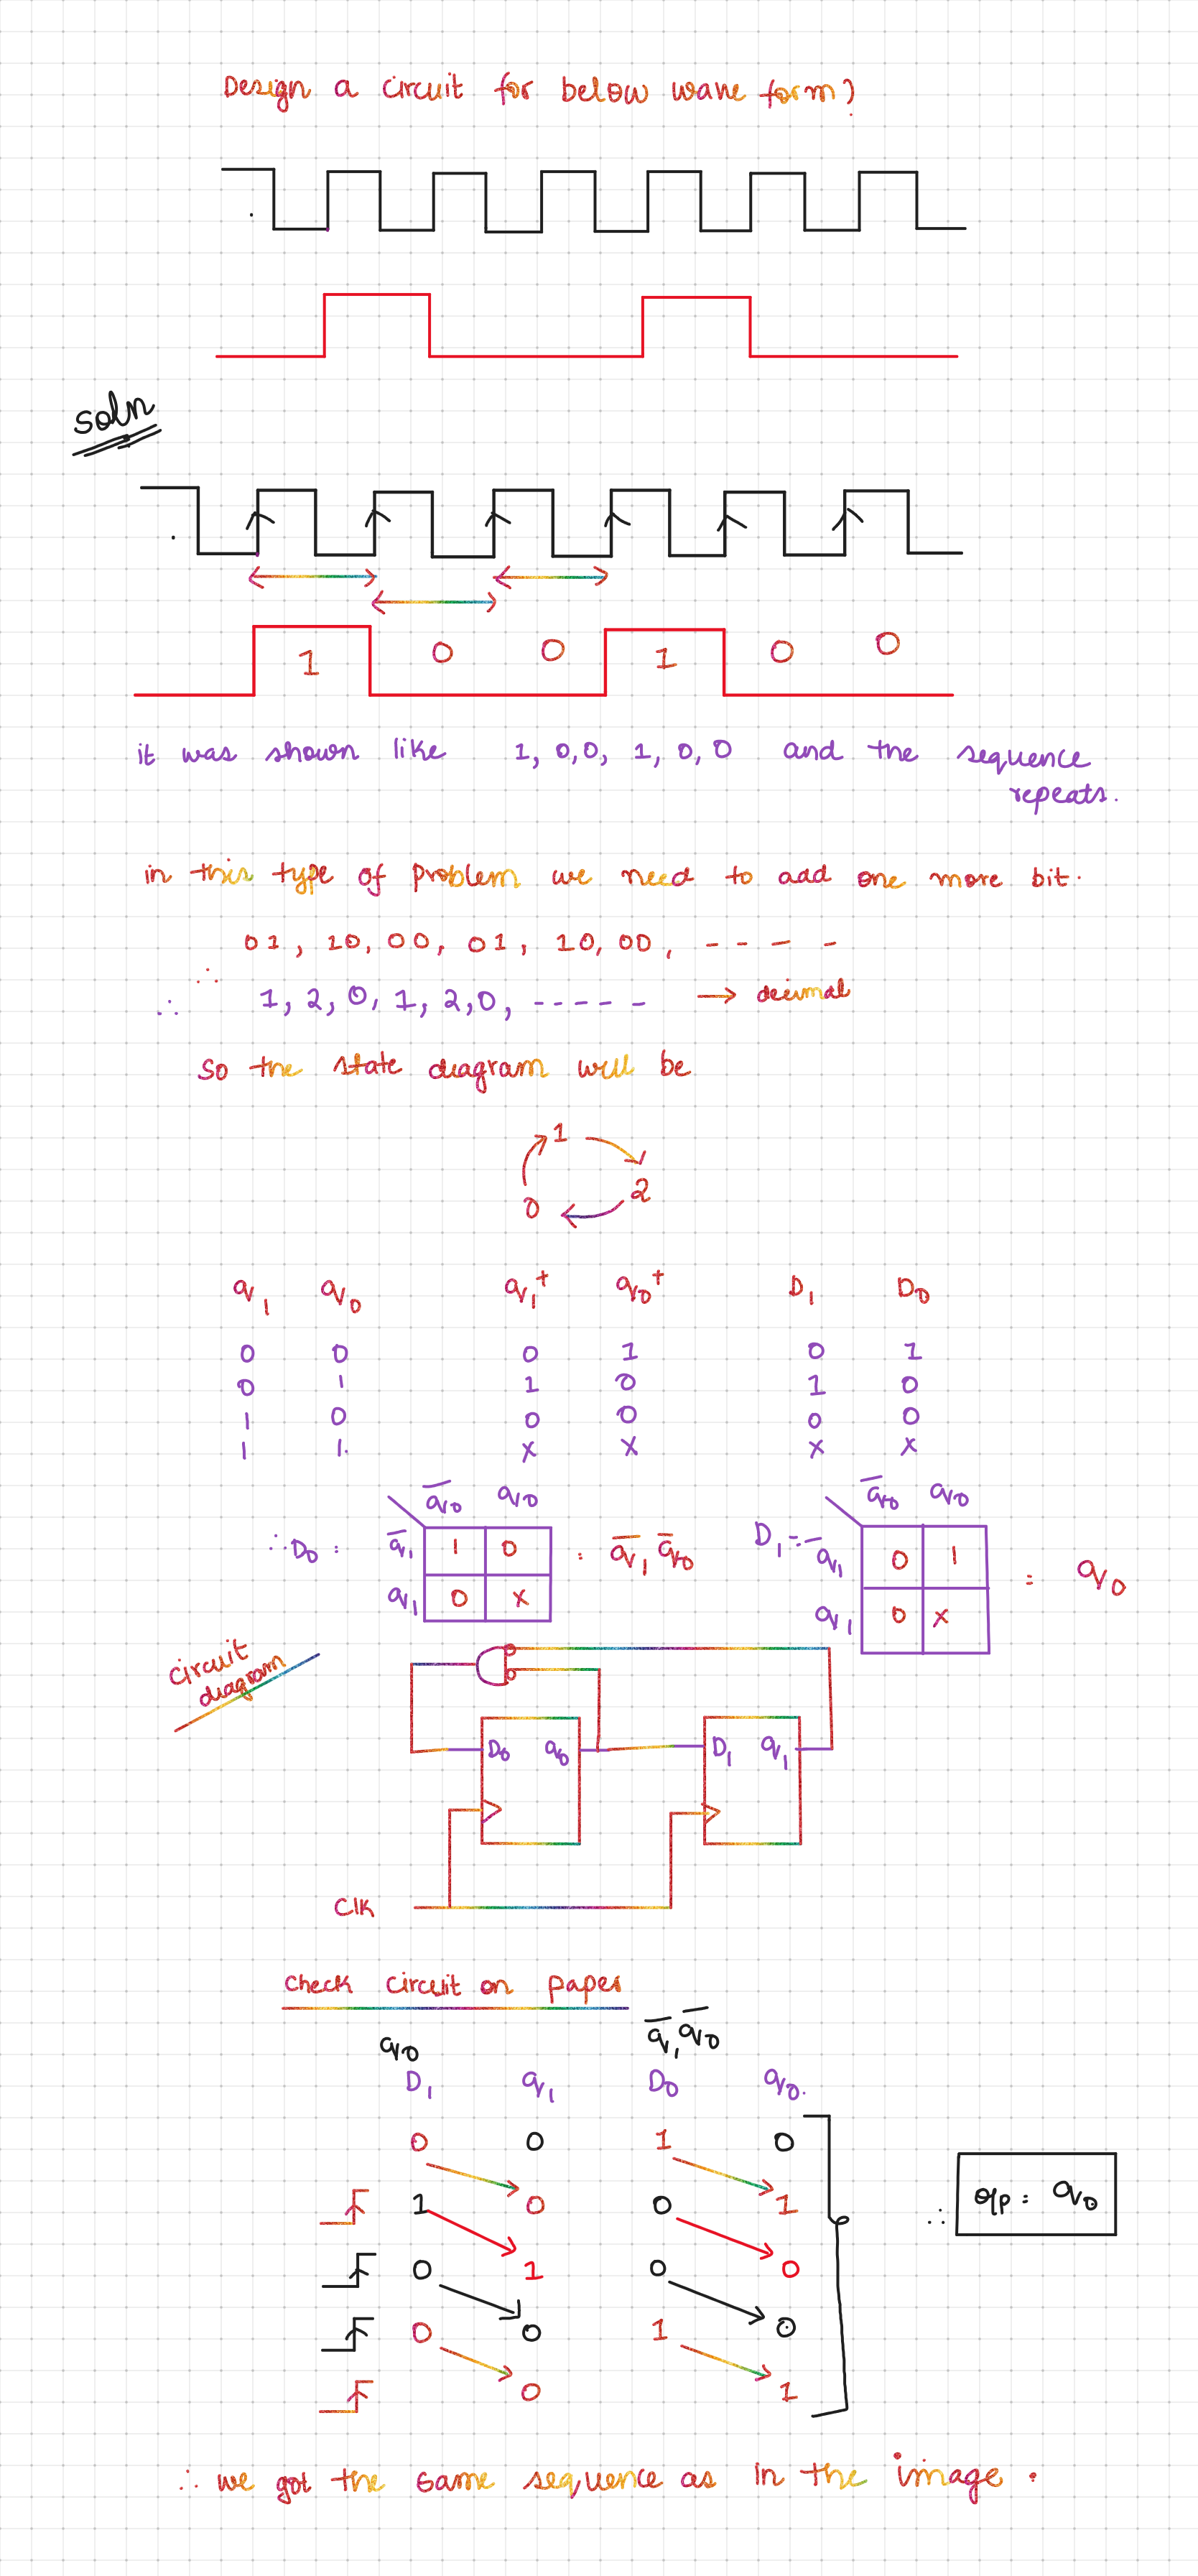 Design a circuit for below wave form?
soln
1 0 0 1 0 0
it was shown like 1, 0,0, 1, 0, 0 and the sequence
repeats.
in this type of problem we need to add one more bit.
01, 10, 00, 01, 10, 00, - - - -
∴ 1, 2, 0, 1, 2, 0, - - - - - → decimal
so the state diagram will be
1
2
0
q₁ q₀ q₁⁺ q₀⁺ D₁ D₀
0 0 0 1 0 1
0 1 1 0 1 0
1 0 0 0 0 0
1 1 x x x x
q̅₀ q₀ q̅₀ q₀
∴ D₀ = q̅₁ 1 0 = q̅₁ q̅₀ D₁ = q̅₁ 0 1 = q₀
q₁ 0 x q₁ 0 x
circuit
diagram
D₀ q₀ D₁ q₁
Clk
Check circuit on paper
q₀ q̅₁ q̅₀
D₁ q₁ D₀ q₀
0 0 1 0
1 0 0 1
0 1 0 0
0 0 1 0
0 1
∴ o/p = q₀
∴ we got the same sequence as in the image.